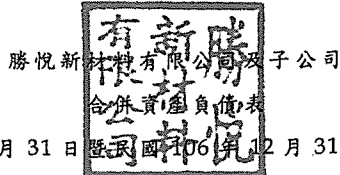 勝悅新材料有限公司及子公司
合併資產負債表
月 31 日暨民國 106 年 12 月 31
勝悅
新材料
有限公司